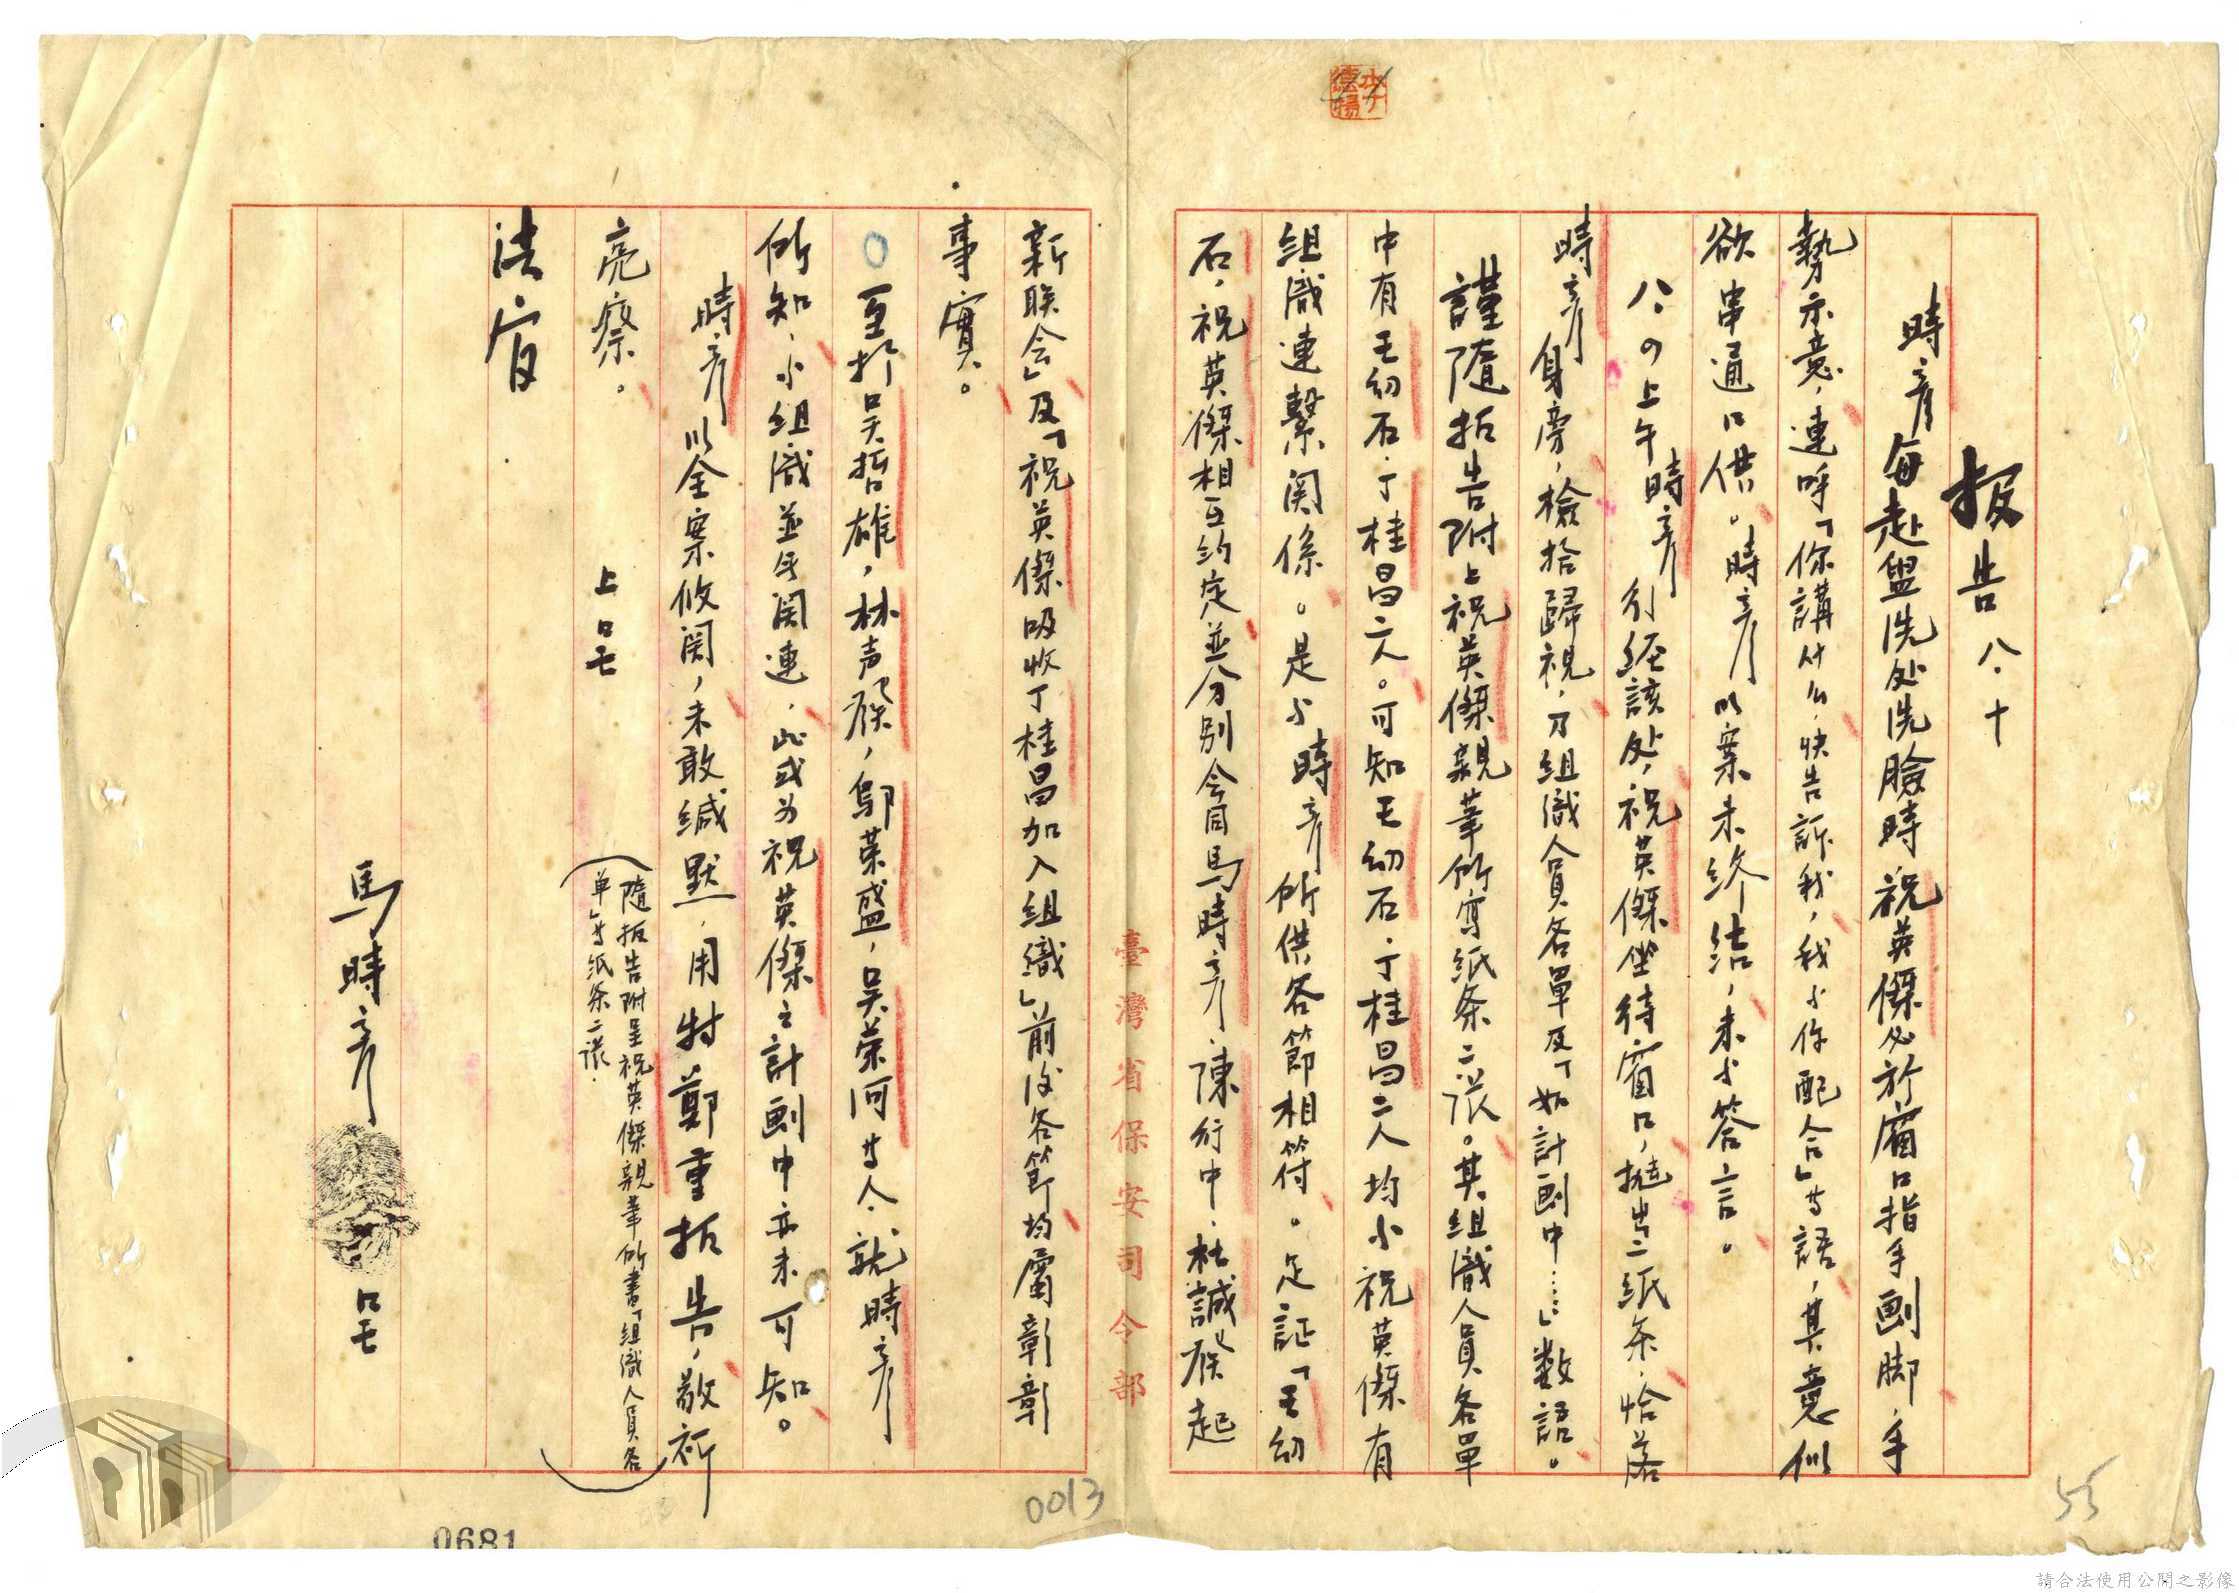 報告 八、十
時彥每赴盥洗处洗臉時祝英傑必於窗口指手劃脚，手
勢示意，連呼「你講什么，快告訴我，我与你配合」等語，其意似
欲串通口供。時彥以案未終結，未与答言。
八、四上午時彥行經該处，祝英傑坐待窗口，擲出二紙条，恰落
時彥身旁，檢拾歸視，乃組織人員名單及「如計劃中……」数語。
謹隨报告附上祝英傑親筆所寫紙条二張。其組織人員名單
中有王幼石、丁桂昌二人。可知王幼石、丁桂昌二人均与祝英傑有
組織連繫関係。是与時彥所供各節相符。足証「王幼
石，祝英傑相互約定並分別介召馬時彥、陳行中、杜誠發起
新联会」及「祝英傑吸收丁桂昌加入組織」前後各節均屬彰彰
事實。
至於吳哲雄，林声發，鄔荣盛，吳荣河等人就時彥
所知，与組織並無関連，此或为祝英傑之計劃中亦未可知。
時彥以全案攸関，未敢緘默，用特鄭重报告，敬祈
亮察。 上口呈
（隨报告附呈祝英傑親筆所書「組織人員名
单」等紙条二張。）
法官
馬時彥 口呈
臺灣省保安司令部
李德揚
0013
55
0681
請合法使用公開之影像